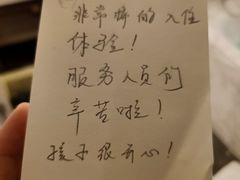 非常棒的入住
体验！
服务人员们
辛苦啦！
孩子很开心！